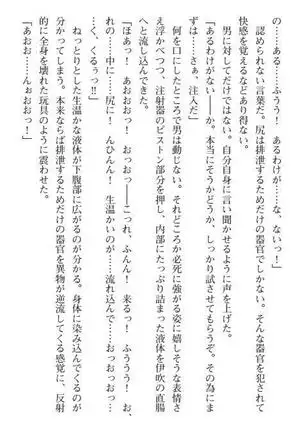 の……ある……ふうう！　あるわけが……な、ないっ！」
認められない言葉だ。尻は排泄するためだけの器官でしかない。そんな器官を犯されて
快感を覚えるなどあり得ない。
男に対してだけではない。自分自身に言い聞かせるように声を上げた。
「あるわけがない――か。本当にそうかどうか、しっかり試させてもらうぞ。その為にま
ずは……さぁ、注入だ」
何を口にしたところで男は動じない。それどころか必死に強がる姿に嬉しそうな表情さ
え浮かべつつ、注射器のピストン部分を押し、内部にたっぷり詰まった液体を伊吹の直腸
へと流し込んできた。
「ほあっ！　あおおおっ！　おっおっ――これ、ふんん！　来るっ！　ふううう！　お、お
れの……中に……尻に！　んひんん！　生温かいのが……流れ込んで……おっおっおっ
く、くるぅっ!!」
ねっとりとした生温かな液体が下腹部に広がるのが分かる。身体に染み込んでくるのが
分かってしまう。本来ならば排泄するためだけの器官を異物が逆流してくる感覚に、反射
的に全身を壊れた玩具のように震わせた。
「あおお……んぉおおっ！」